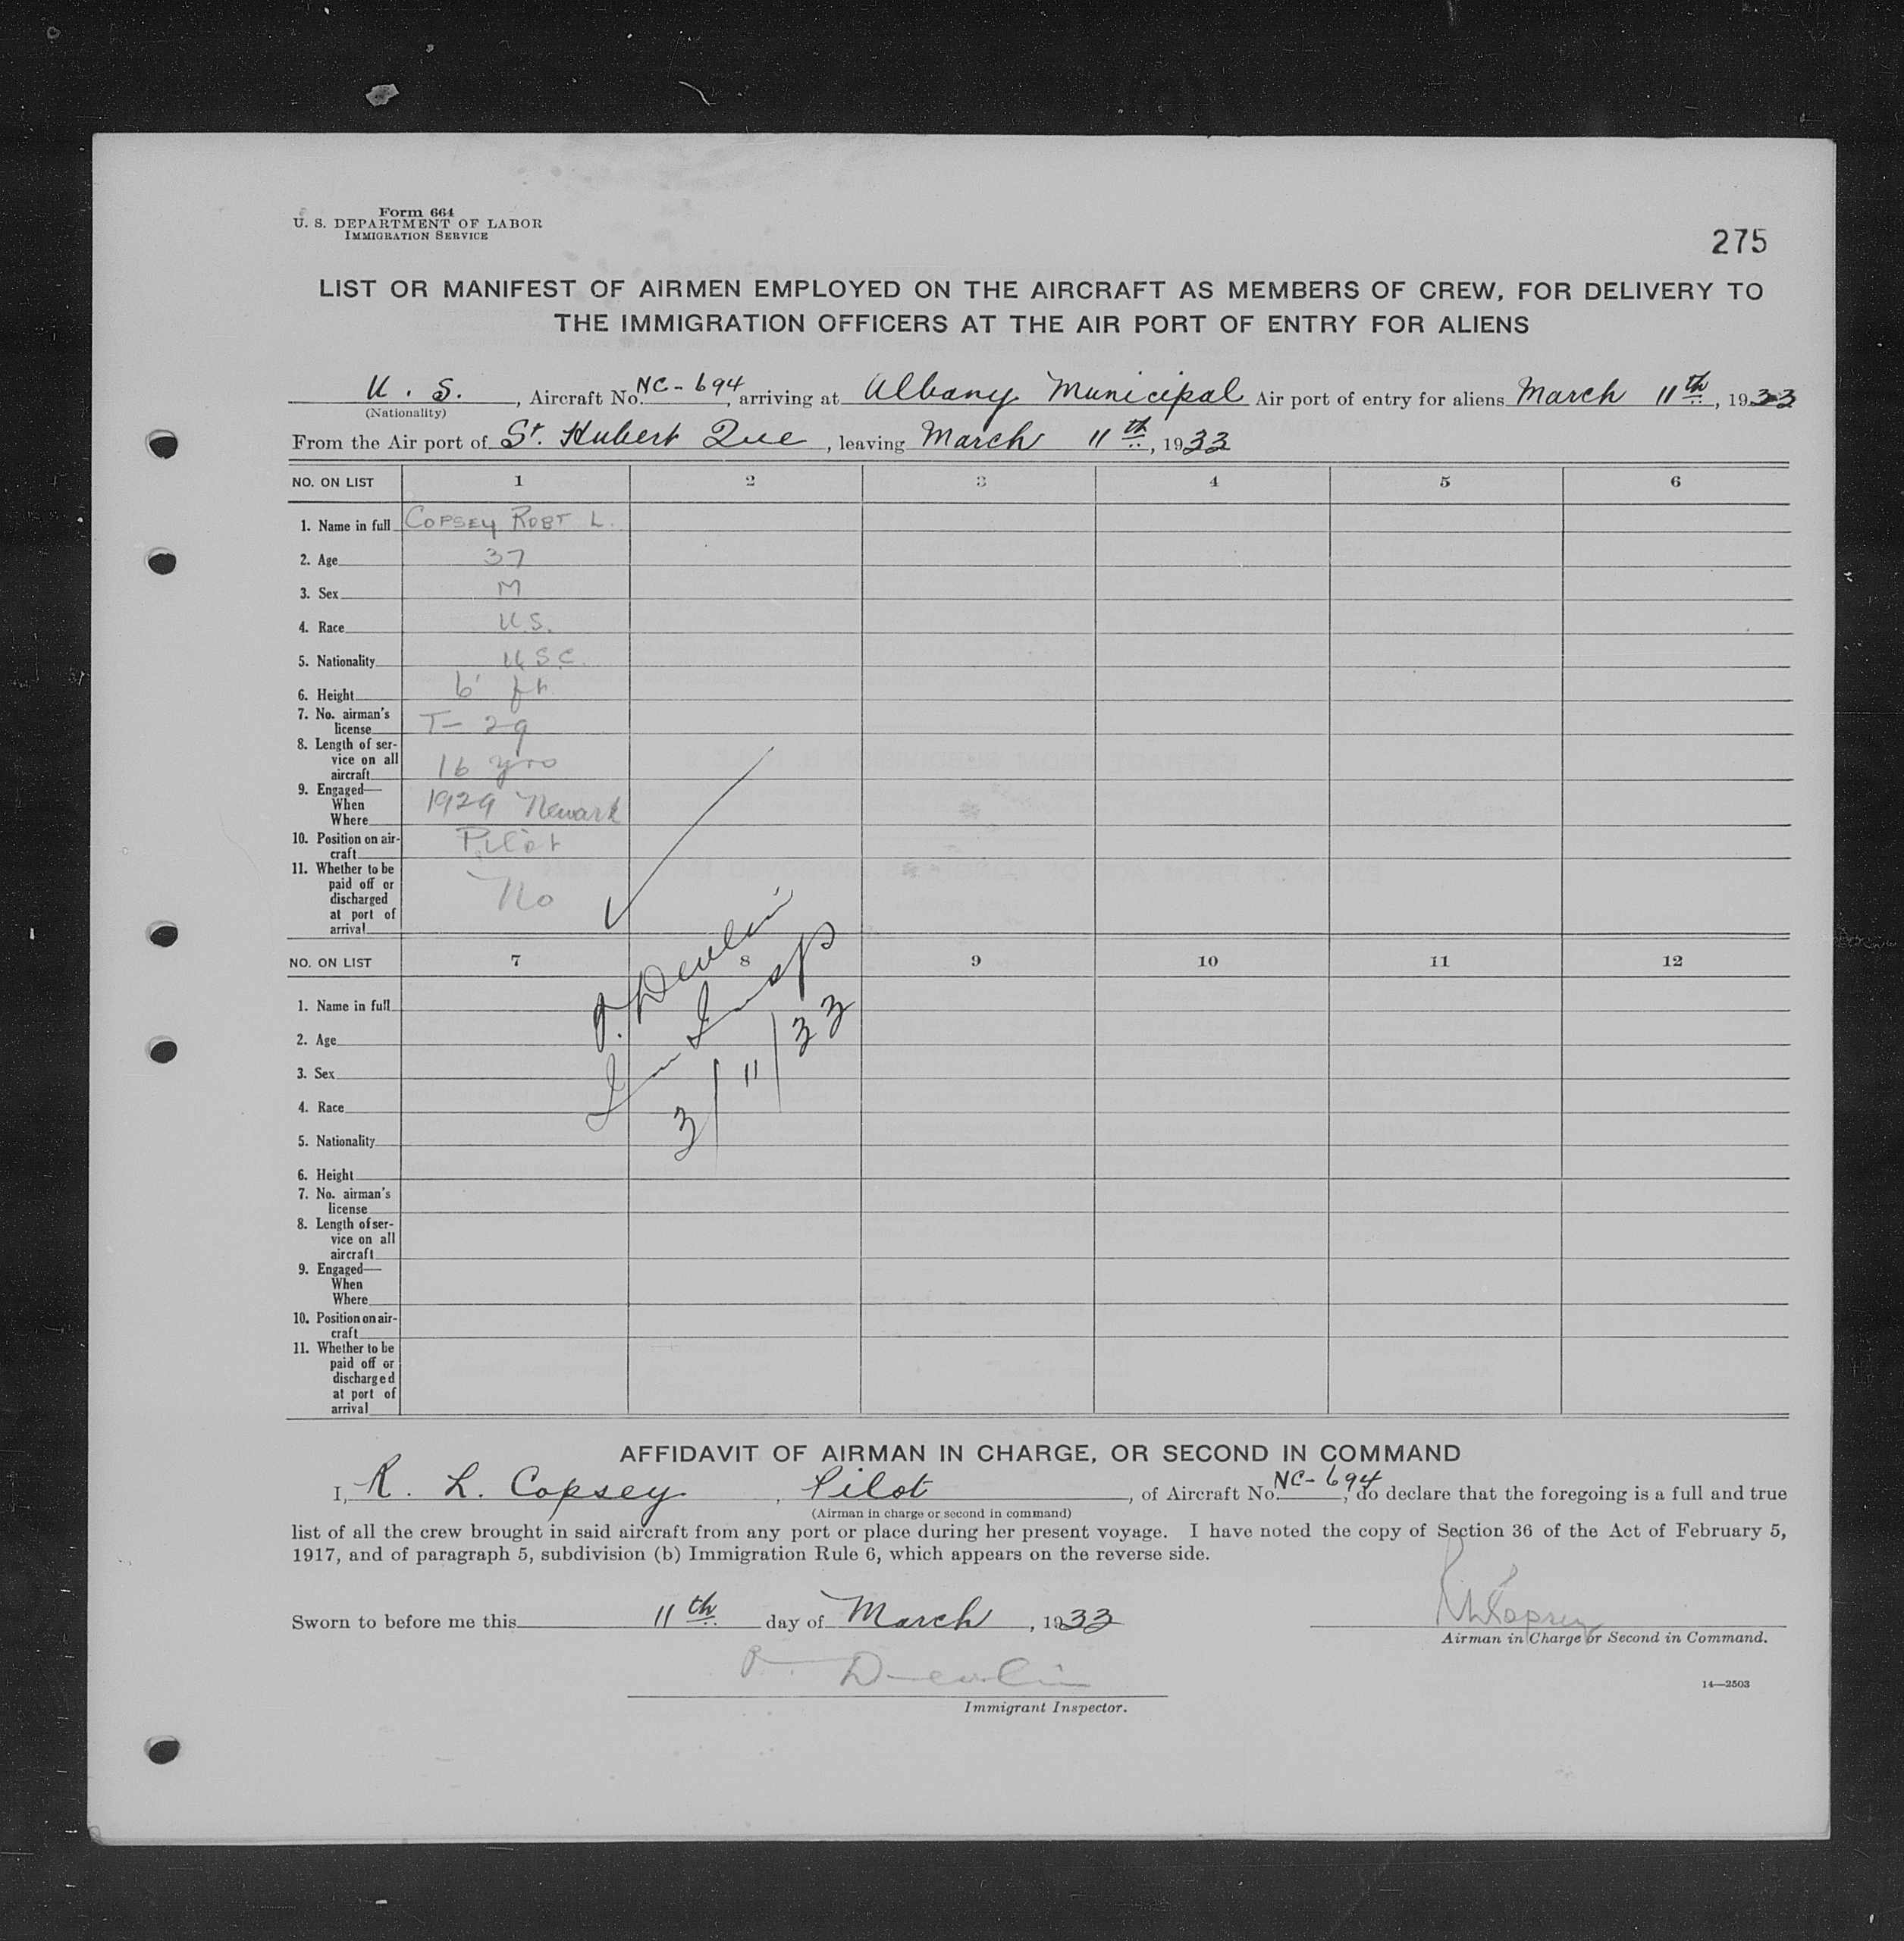 Form 664
U. S. DEPARTMENT OF LABOR
IMMIGRATION SERVICE
275
LIST OR MANIFEST OF AIRMEN EMPLOYED ON THE AIRCRAFT AS MEMBERS OF CREW, FOR DELIVERY TO
THE IMMIGRATION OFFICERS AT THE AIR PORT OF ENTRY FOR ALIENS
U. S., Aircraft No. NC-694, arriving at Albany Municipal Air port of entry for aliens March 11th, 1933
(Nationality)
From the Air port of St. Hubert Que, leaving March 11th, 1933
NO. ON LIST 1 2 3 4 5 6
1. Name in full Copsey Robt L.
2. Age 37
3. Sex M
4. Race U.S.
5. Nationality U.S.C.
6. Height 6' ft.
7. No. airman's
license T-29
8. Length of ser-
vice on all
aircraft 16 yrs
9. Engaged—
When 1929 Newark
Where
10. Position on air-
craft Pilot
11. Whether to be
paid off or
discharged No
at port of
arrival
P. Devlin
Imm Insp
3/11/33
NO. ON LIST 7 8 9 10 11 12
1. Name in full
2. Age
3. Sex
4. Race
5. Nationality
6. Height
7. No. airman's
license
8. Length of ser-
vice on all
aircraft
9. Engaged—
When
Where
10. Position on air-
craft
11. Whether to be
paid off or
discharged
at port of
arrival
AFFIDAVIT OF AIRMAN IN CHARGE, OR SECOND IN COMMAND
I, R. L. Copsey, Pilot, of Aircraft No. NC-694, do declare that the foregoing is a full and true
(Airman in charge or second in command)
list of all the crew brought in said aircraft from any port or place during her present voyage. I have noted the copy of Section 36 of the Act of February 5,
1917, and of paragraph 5, subdivision (b) Immigration Rule 6, which appears on the reverse side.
R L Copsey
Sworn to before me this 11th day of March, 1933
Airman in Charge or Second in Command.
P. Devlin
14—2503
Immigrant Inspector.